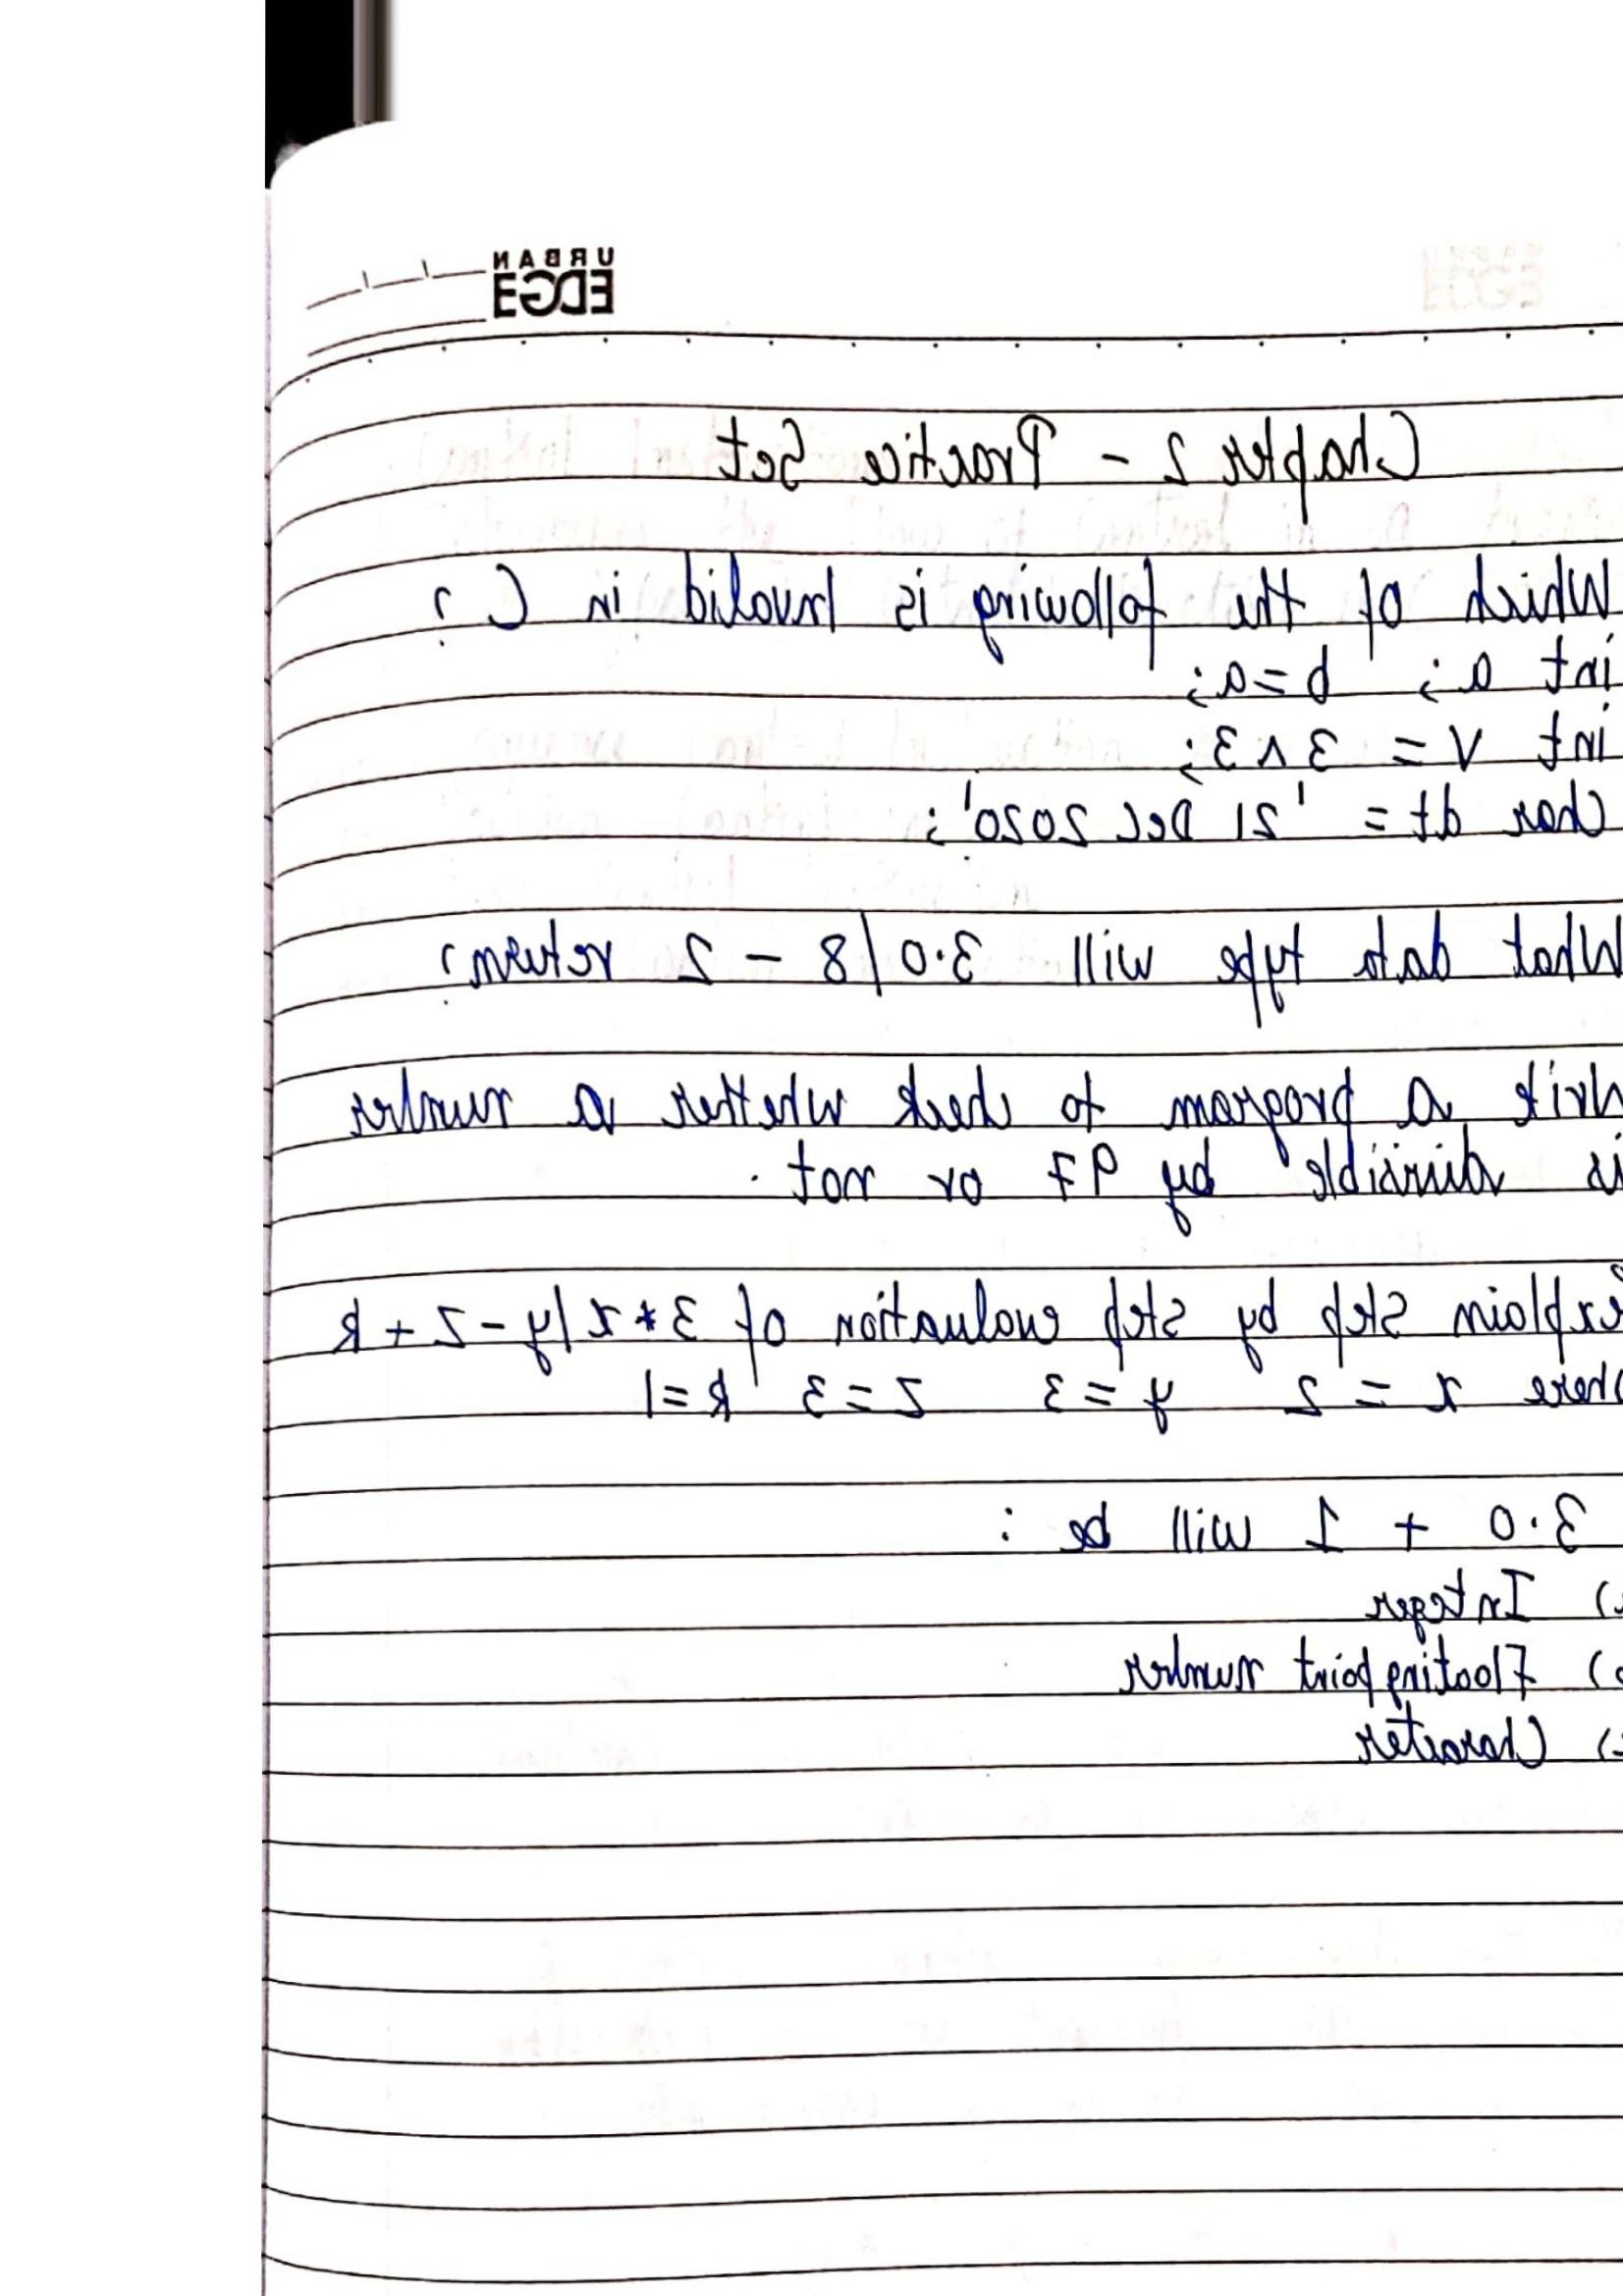 URBAN
EDGE
Chapter 2 - Practice Set
Which of the following is Invalid in C?
int a; b=a;
int V = 3 ^ 3;
Char dt = '21 Dec 2020';
What data type will 3.0/8 - 2 return?
Write a program to check whether a number
is divisible by 97 or not.
explain step by step evaluation of 3*x/y-z+k
where x = 2 y = 3 z = 3 k=1
3.0 + 1 will be :
) Integer
) Floating point number
) Character